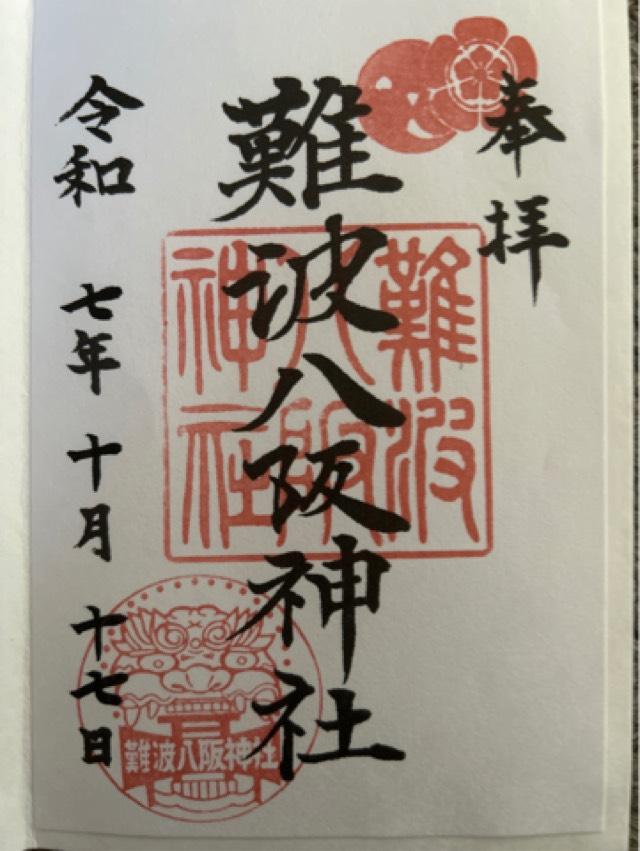 奉拝
難波八阪神社
難波八阪神社
令和 七年 十月 十七日
難波八阪神社